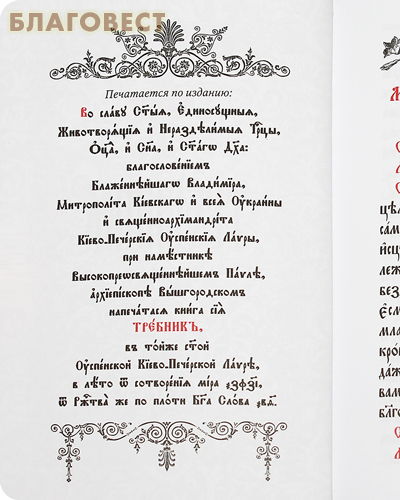 БЛАГОВЕСТ
Печатается по изданию:
Во сла́ву Ст҃ы́ѧ, Є҆диносу́щныѧ,
Животворѧ́щїѧ и҆ Нераздѣ́лимыѧ Трⷪ҇цы,
Ѻ҆ц҃а̀, и҆ Сн҃а, и҆ Ст҃а́гѡ Дх҃а:
благослове́нїемъ
Блаже́ннѣйшагѡ Влади́мїра,
Митрополі́та Кі́евскагѡ и҆ всеѧ̀ Оу҆краи́ны
и҆ свѧще́нноархїмандрі́та
Кі́ево-Пече́рскїѧ Оу҆спе́нскїѧ Ла́ѵры,
при намѣ́стникѣ
Высокопреѡсвѧще́ннѣйшемъ Па́ѵлѣ,
а҆рхїепі́скопѣ Вы́шгородскомъ
напеча́тасѧ кни́га сїѧ̀
ТРЕ́БНИКЪ,
въ то́йже ст҃о́й
Оу҆спе́нской Кі́ево-Пече́рской Ла́ѵрѣ,
въ лѣ́то ѿ сотворе́нїѧ мі́ра ҂зфз҃і,
ѿ Рж҃тва̀ же по пло́ти Бг҃а Сло́ва ҂в҃а.
цѣл
сам
и҆сц
леж
без
є҆см
мла
кро
да́ж
вам
бл҃г